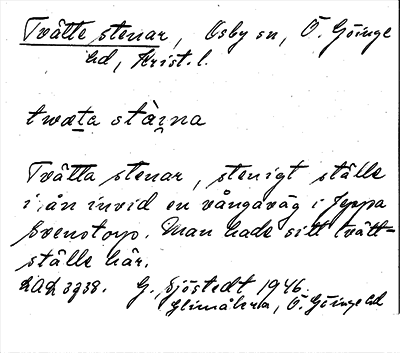 Tvätte stenar, Osby sn, Ö. Göinge
hd, Krist. l.
twæta stæ̀ṇa
Tvätta stenar, stenigt ställe
i ån invid en vångaväg i Jeppa
Svenstorp. Man hade sitt tvätt-
ställe här.
LAL 3938. G. Sjöstedt 1946.
Glimåkra, Ö. Göinge hd